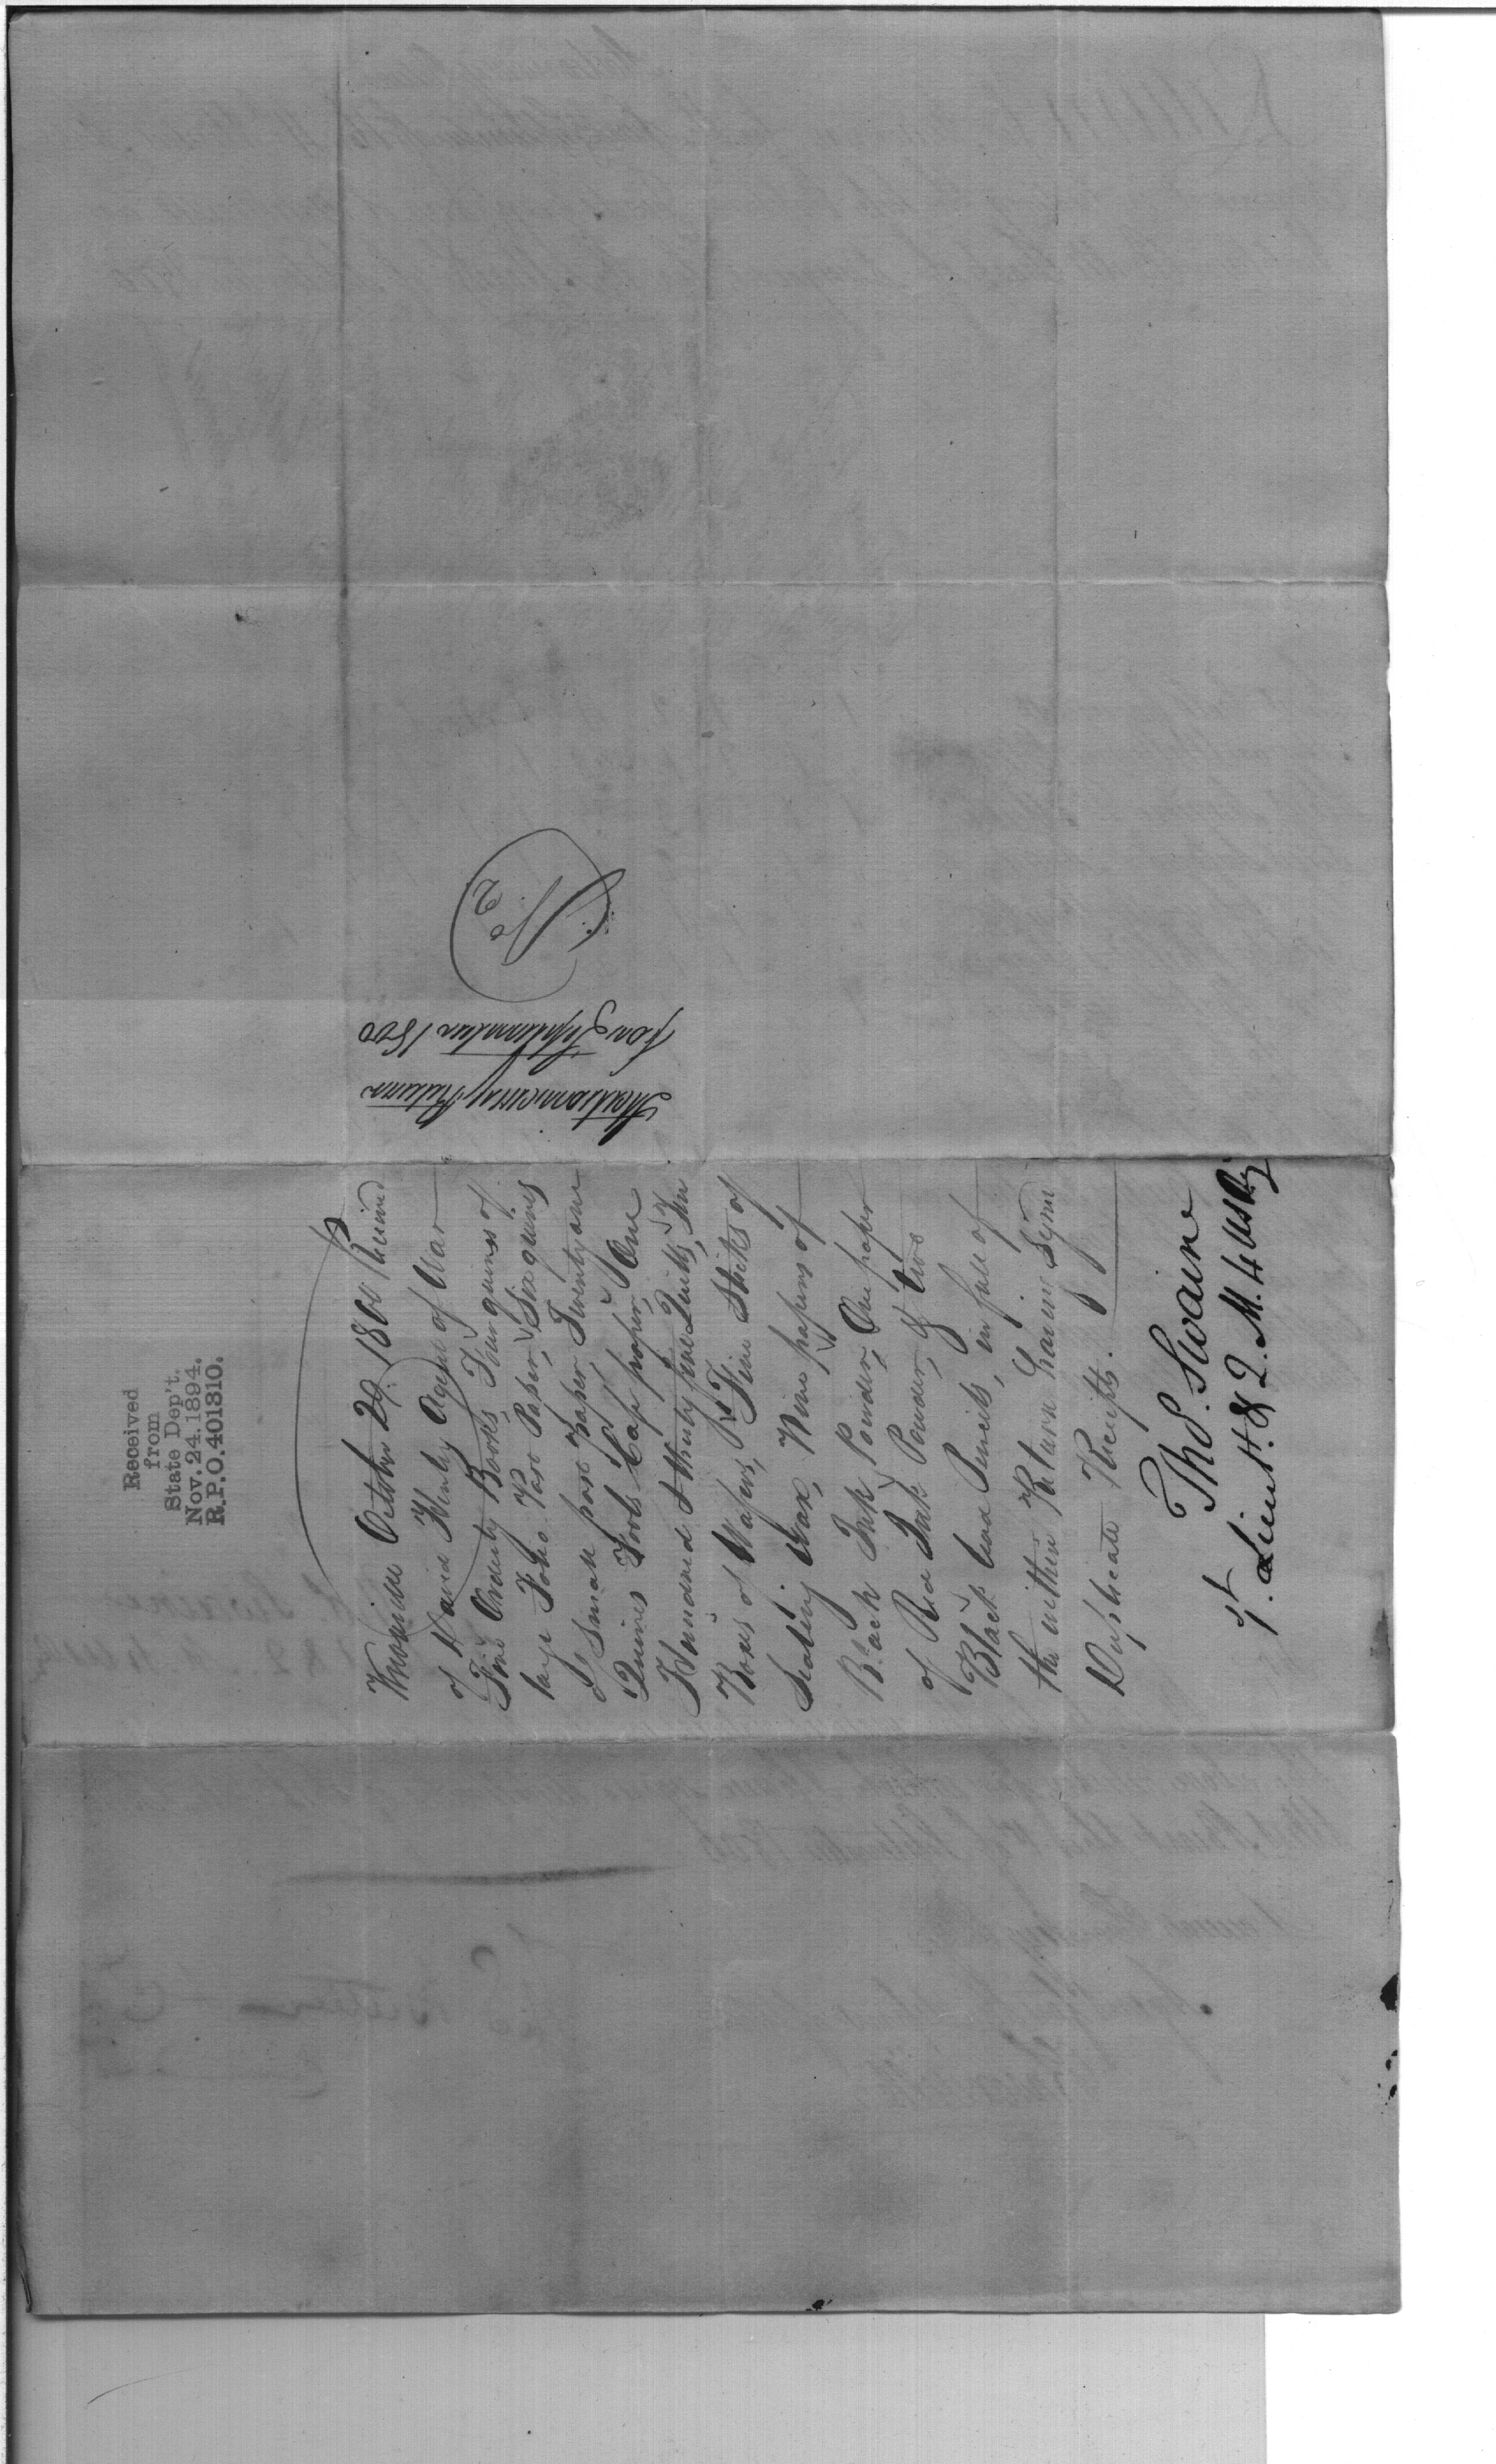 Received
from
State Dep't.
Nov. 24. 1894.
R.P.O. 401310.
Knoxville October 29, 1800 Received
of David Henly Agent of War
Five Orderly Books, Four quires of
large Folio Post Paper, Six quires
of Small post paper, Twenty one
Quires Fools Cap paper, One
Hundred & thirty five Quills,
Boxes of Wafers, Nine Sticks of
Sealing Wax, Nine papers of
Black Ink Powder, One paper
of Red Ink Powder, & two
Black lead Pencils, in full of
the within Return having signd
Duplicate Receipts.
Tho. Swaine
1st. Lieut. & Q. M. 4 US Rg
Stationary Return
for September 1800
No. 2